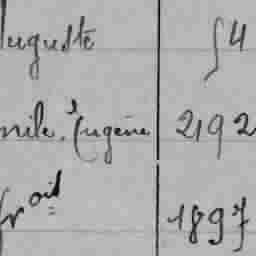 Auguste 54
mile, Eugène 2192
froid 1897